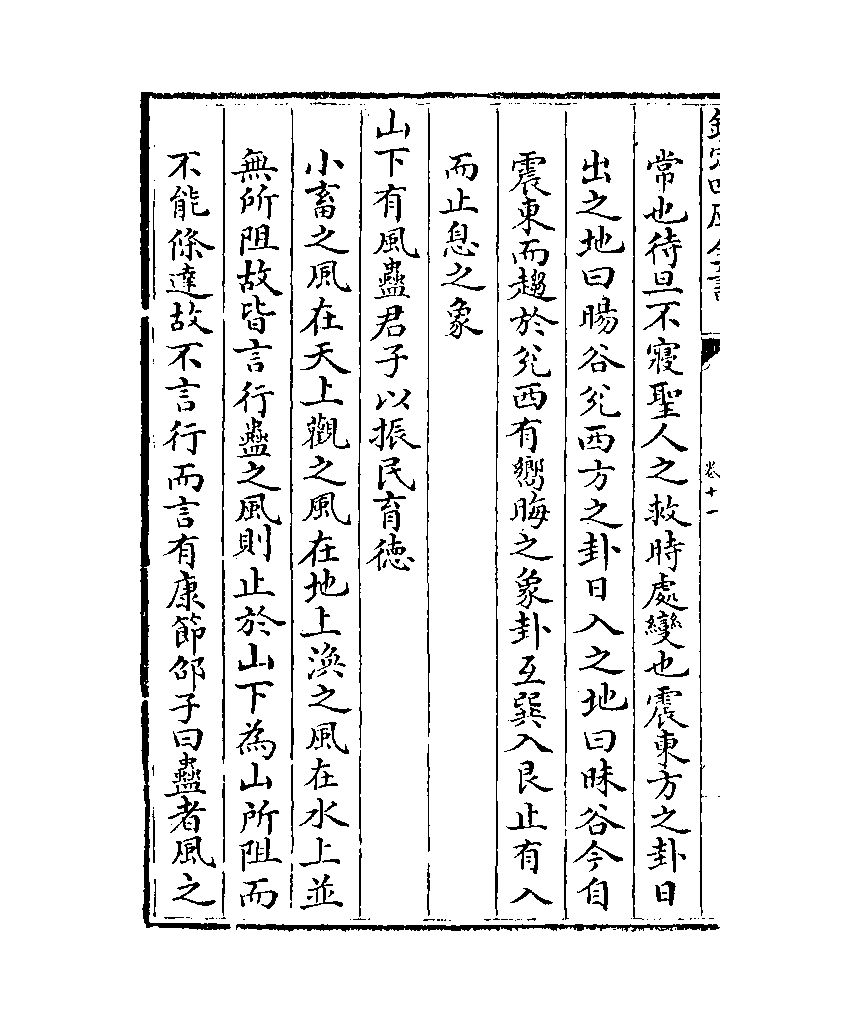 欽定四庫全書
卷十一
常也待旦不寢聖人之救時處變也震東方之卦日
出之地曰暘谷兊西方之卦日入之地曰昧谷今自
震東而趨於兊西有嚮晦之象卦互巽入艮止有入
而止息之象
山下有風蠱君子以振民育德
小畜之風在天上觀之風在地上渙之風在水上並
無所阻故皆言行蠱之風則止於山下為山所阻而
不能條達故不言行而言有康節邵子曰蠱者風之